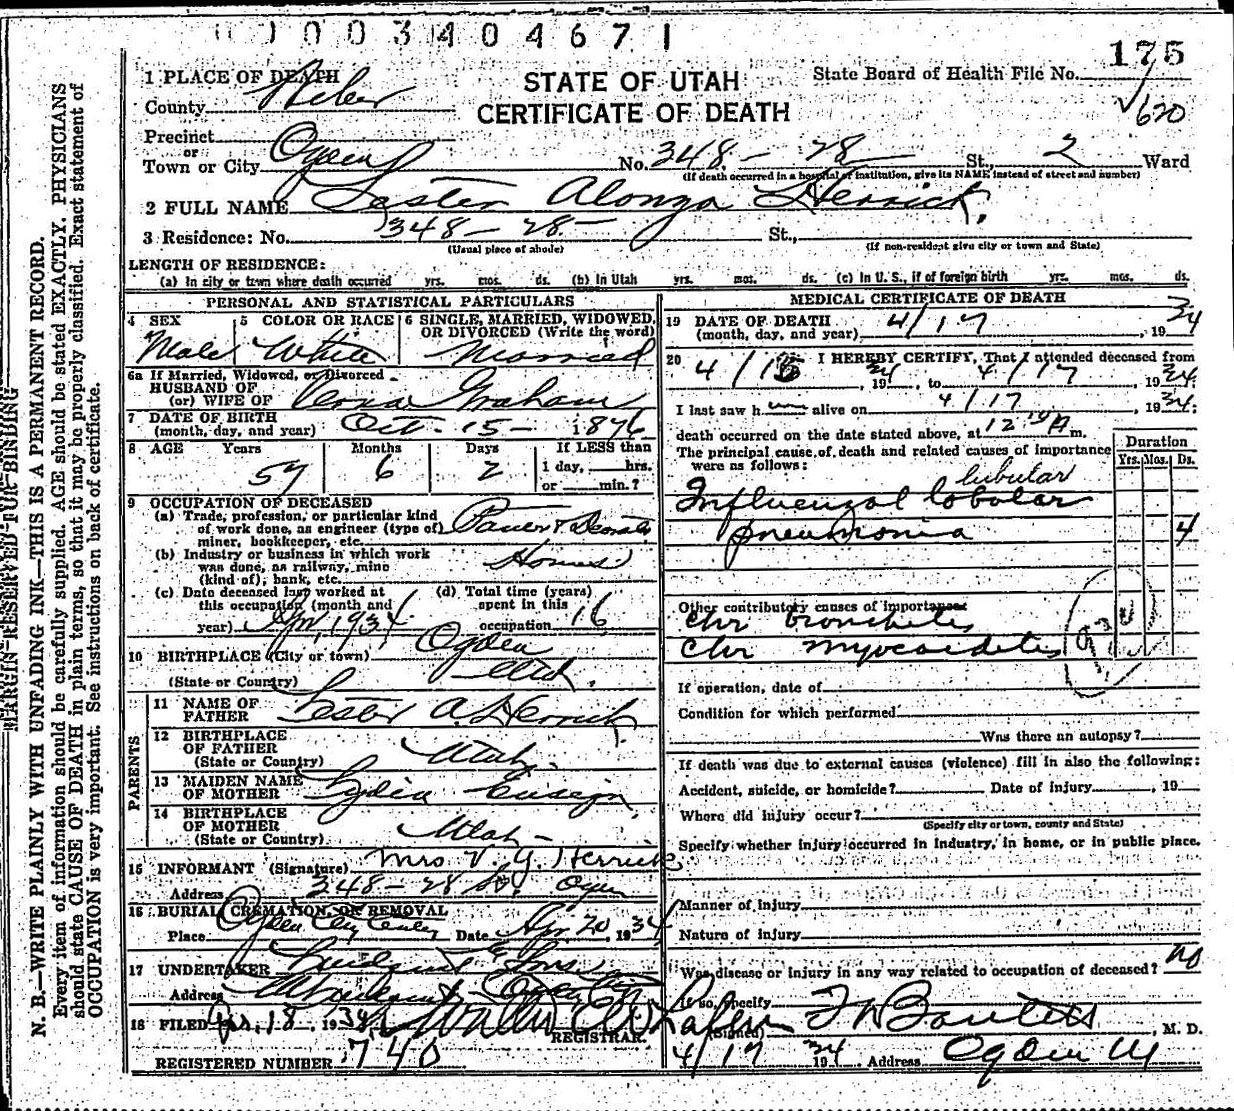 1003404671
175
1 PLACE OF DEATH
STATE OF UTAH
State Board of Health File No.
County Weber
CERTIFICATE OF DEATH
620
Precinct
or
Town or City Ogden No. 348 - 28 St., 2 Ward
(If death occurred in a hospital or institution, give its NAME instead of street and number)
2 FULL NAME Lester Alonzo Herrick.
3 Residence: No. 348 - 28 - St.,
(Usual place of abode) (If non-resident give city or town and State)
LENGTH OF RESIDENCE:
(a) In city or town where death occurred yrs. mos. ds. (b) In Utah yrs. mos. ds. (c) In U. S., if of foreign birth yrs. mos. ds.
PERSONAL AND STATISTICAL PARTICULARS
4 SEX Male
5 COLOR OR RACE White
6 SINGLE, MARRIED, WIDOWED, OR DIVORCED (Write the word) Married
6a If Married, Widowed, or Divorced
HUSBAND OF
(or) WIFE OF Graham
7 DATE OF BIRTH
(month, day, and year) Oct - 15 - 1876
8 AGE Years Months Days If LESS than
57 6 2 1 day, hrs.
or min.?
9 OCCUPATION OF DECEASED
(a) Trade, profession, or particular kind
of work done, as engineer (type of)
miner, bookkeeper, etc.
(b) Industry or business in which work
was done, as railway, mine
(kind of), bank, etc. Homes
(c) Date deceased last worked at
this occupation (month and
year) Apr, 1934
(d) Total time (years)
spent in this
occupation 16
10 BIRTHPLACE (City or town) Ogden
(State or Country) Utah.
PARENTS
11 NAME OF
FATHER Lester A. Herrick
12 BIRTHPLACE
OF FATHER
(State or Country) Utah.
13 MAIDEN NAME
OF MOTHER Lydia
14 BIRTHPLACE
OF MOTHER
(State or Country) Utah -
15 INFORMANT (Signature) Mrs V. G. Herrick
Address 348 - 28 St, Ogden
16 BURIAL, CREMATION, OR REMOVAL
Place Ogden City Cemetery Date Apr. 20, 1934
17 UNDERTAKER & Sons
Address Ogden
18 FILED Apr, 18, 1934
REGISTRAR.
REGISTERED NUMBER 740
MEDICAL CERTIFICATE OF DEATH
19 DATE OF DEATH
(month, day, and year) 4/17, 1934
20 I HEREBY CERTIFY, That I attended deceased from
4/15, 1934, to 4/17, 1934:
I last saw him alive on 4/17, 1934:
death occurred on the date stated above, at 12 A m.
The principal cause of death and related causes of importance
were as follows:
Duration
Yrs. Mos. Ds.
lubular
Influenzal lobular
pneumonia 4
Other contributory causes of importance
Chr bronchitis
Chr myocarditis
If operation, date of
Condition for which performed
Was there an autopsy?
If death was due to external causes (violence) fill in also the following:
Accident, suicide, or homicide? Date of injury , 19
Where did injury occur?
(Specify city or town, county and State)
Specify whether injury occurred in industry, in home, or in public place.
Manner of injury
Nature of injury
Was disease or injury in any way related to occupation of deceased? no
If so, specify
(Signed) , M. D.
4/17 1934. Address Ogden
MARGIN RESERVED FOR BINDING
N. B.—WRITE PLAINLY WITH UNFADING INK—THIS IS A PERMANENT RECORD.
Every item of information should be carefully supplied. AGE should be stated EXACTLY. PHYSICIANS
should state CAUSE OF DEATH in plain terms, so that it may be properly classified. Exact statement of
OCCUPATION is very important. See instructions on back of certificate.